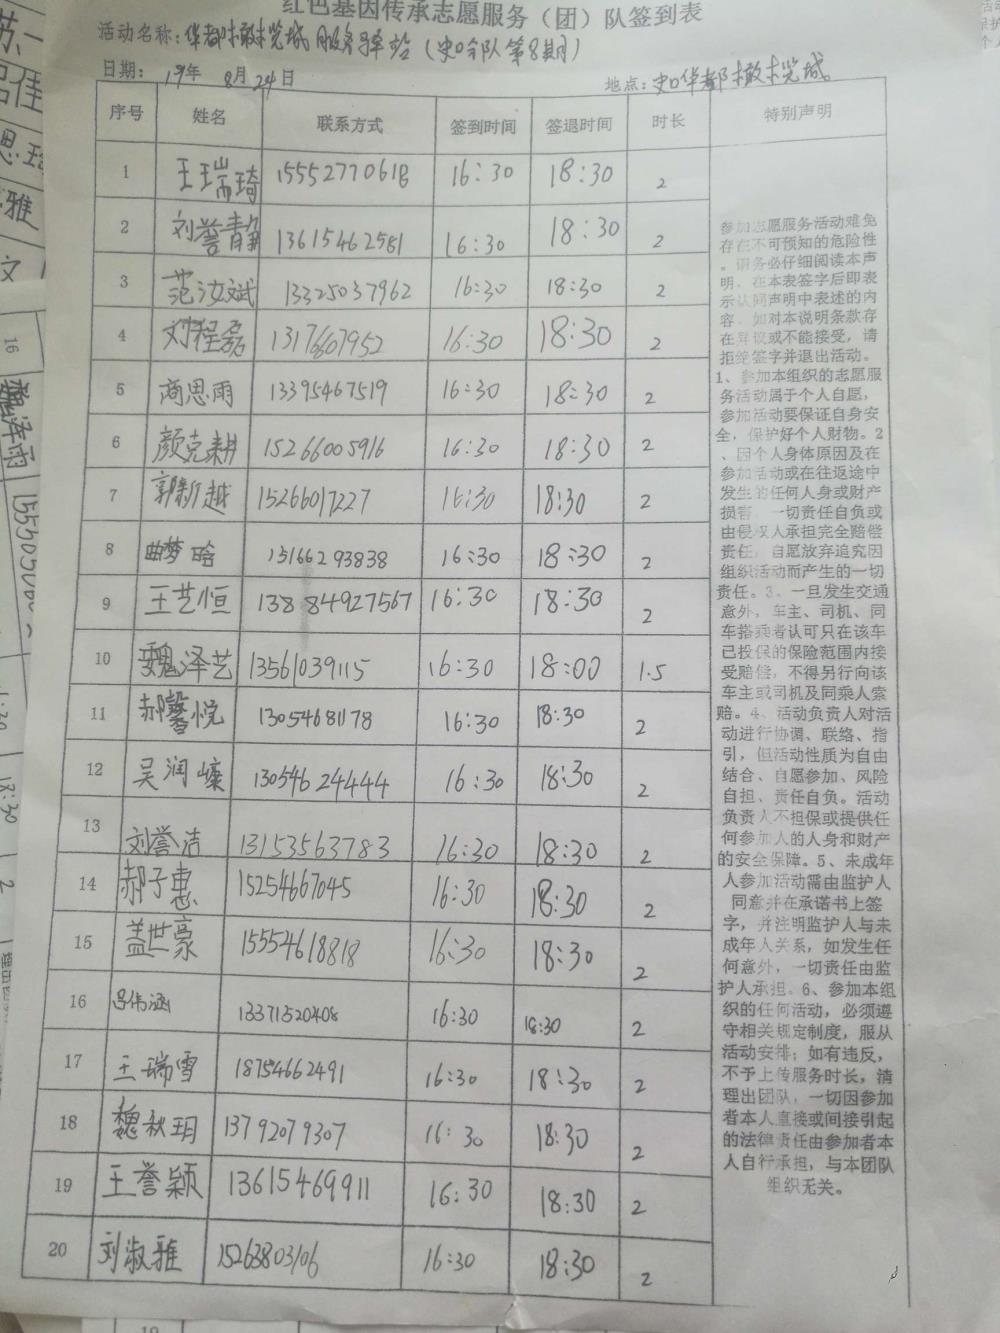 红色基因传承志愿服务（团）队签到表
活动名称：华都橄榄城服务驿站（史口分队第8期）
日期： 19年 8月24日 地点：史口华都橄榄城
序号 姓名 联系方式 签到时间 签退时间 时长 特别声明
1 王瑞琦 15552770618 16:30 18:30 2
2 刘誉静 13615462581 16:30 18:30 2
3 范汝斌 13325037962 16:30 18:30 2
4 刘程磊 13176607952 16:30 18:30 2
5 商思雨 13395467519 16:30 18:30 2
6 颜克耕 15266005916 16:30 18:30 2
7 郭新越 15266017227 16:30 18:30 2
8 曲梦晗 15166293838 16:30 18:30 2
9 王艺恒 13884927567 16:30 18:30 2
10 魏泽艺 13561039115 16:30 18:00 1.5
11 郝馨悦 13054681178 16:30 18:30 2
12 吴润嶸 13054624444 16:30 18:30 2
13 刘誉洁 13153563783 16:30 18:30 2
14 郝子惠 15254667045 16:30 18:30 2
15 盖世豪 15554618818 16:30 18:30 2
16 吕伟涵 13371520408 16:30 18:30 2
17 王瑞雪 18754662491 16:30 18:30 2
18 魏秋玥 13792079307 16:30 18:30 2
19 王誉颖 13615469911 16:30 18:30 2
20 刘淑雅 15263803106 16:30 18:30 2
参加志愿服务活动难免
存在不可预知的危险性
。请务必仔细阅读本声
明，在本表签字后即表
示认同声明中表述的内
容。如对本说明条款存
在异议或不能接受，请
拒绝签字并退出活动。
1、参加本组织的志愿服
务活动属于个人自愿，
参加活动要保证自身安
全，保护好个人财物。2
、因个人身体原因及在
参加活动或在往返途中
发生的任何人身或财产
损害，一切责任自负或
由侵权人承担完全赔偿
责任，自愿放弃追究因
组织活动而产生的一切
责任。3、一旦发生交通
意外，车主、司机、同
车搭乘者认可只在该车
已投保的保险范围内接
受赔偿，不得另行向该
车主或司机及同乘人索
赔。4、活动负责人对活
动进行协调、联络、指
引，但活动性质为自由
结合、自愿参加、风险
自担、责任自负。活动
负责人不担保或提供任
何参加人的人身和财产
的安全保障。5、未成年
人参加活动需由监护人
同意并在承诺书上签
字，并注明监护人与未
成年人关系，如发生任
何意外，一切责任由监
护人承担。6、参加本组
织的任何活动，必须遵
守相关规定制度，服从
活动安排；如有违反，
不予上传服务时长，清
理出团队，一切因参加
者本人直接或间接引起
的法律责任由参加者本
人自行承担，与本团队
组织无关。
16 魏泽雨
18:30 2